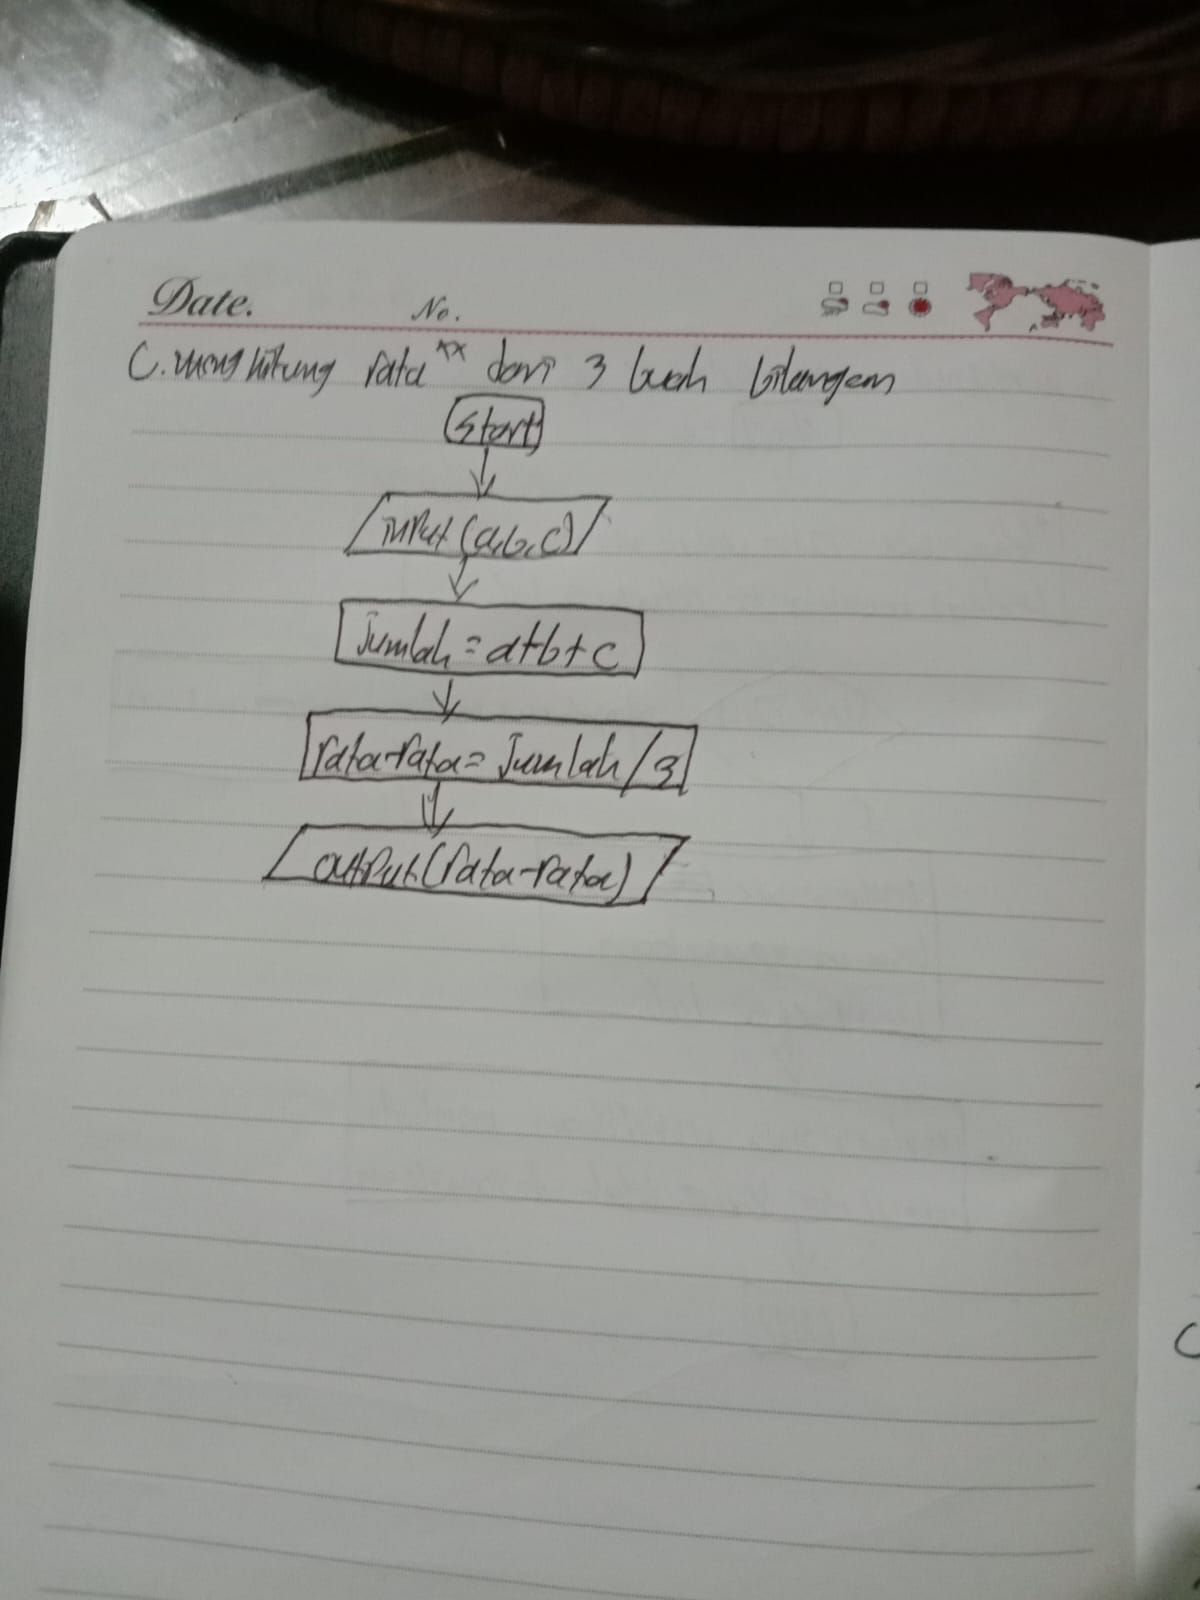 Date. No.
C. menghitung rata** dari 3 buah bilangan
Start
input (a,b,c)
Jumlah = a+b+c
rata-rata = Jumlah/3
output (rata-rata)